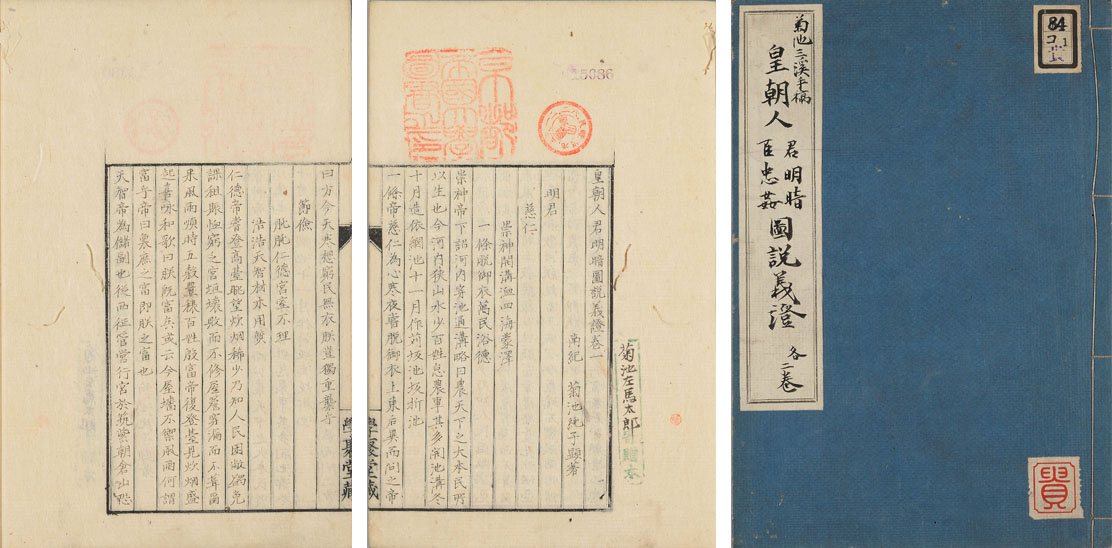 菊池三溪手稿
皇朝人君明暗臣忠姦圖說義證 各二卷
84
貴
京都帝國大學圖書之印
菊池左馬太郎
皇朝人君明暗圖說義證卷一
南紀 菊池純子顯著
明君
慈仁
崇神開溝洫四海蒙澤
一條脫御衣萬民浴德
崇神帝下詔河內穿池通溝略曰農天下之大本民所
以生也今河內狹山水少百姓怠農事其多開池溝冬
十月造依網池十一月作苅坂池坂折池
一條帝慈仁為心寒夜嘗脫御衣上東后異而問之帝
學聚堂藏
曰方今天寒想窮民無衣朕豈獨重乎
節儉
仁德宮室不理
浩浩天智材木用質
仁德帝嘗登高臺眺望炊烟稀少乃知人民困敝蠲免
課租賑恤窮乏宮垣壞敗而不修屋蓋穿漏而不葺
風雨順時五穀豐穰百姓殷富帝復登臺見炊烟盛
起喜咏和歌曰朕既富矣或云今屋墻不禦風雨何謂
富乎帝曰衆庶之富即朕之富也
天智帝為儲副也從西征營行宮於筑紫朝倉山
學聚堂藏